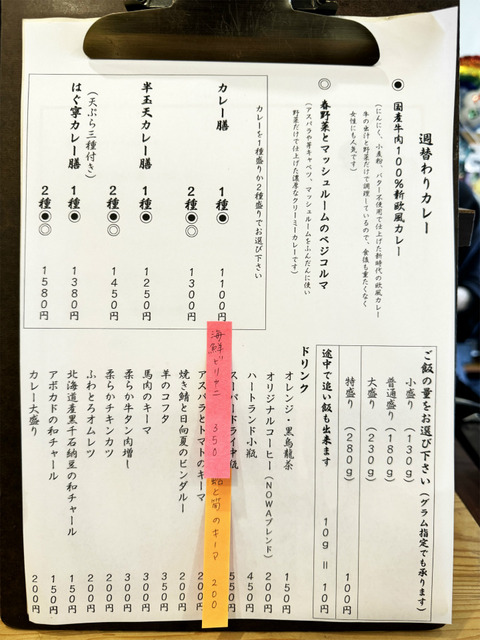 週替わりカレー
●国産牛肉100%新欧風カレー
(にんにく、小麦粉、バター不使用で仕上げた新時代の欧風カレー
牛の出汁と野菜だけで調理しているので、食後も重たくなく
女性にも人気です)
◎春野菜とマッシュルームのベジコルマ
(アスパラや芽キャベツ、マッシュルームをふんだんに使い
野菜だけで仕上げた濃厚なクリーミーカレーです)
カレーを1種盛りか2種盛りでお選び下さい
カレー膳
1種● 1100円
2種●◎ 1300円
半玉天カレー膳
1種● 1250円
2種●◎ 1450円
はぐ寧カレー膳
(天ぷら三種付き)
1種● 1380円
2種●◎ 1580円
ご飯の量をお選び下さい(グラム指定でも承ります)
小盛り(130g)
普通盛り(180g)
大盛り(230g)
特盛り(280g) 100円
途中で追い飯も出来ます 10g=10円
ドリンク
オレンジ・黒烏龍茶 150円
オリジナルコーヒー(NOWAブレンド) 200円
ハートランド小瓶 450円
スーパードライ中瓶 550円
海鮮ビリヤニ 350
鮭と筍のキーマ 200
アスパラとトマトのキーマ 200円
焼き鯖と日向夏のビンダルー 200円
羊のコフタ 350円
馬肉のキーマ 300円
柔らか牛タン肉増し 300円
柔らかチキンカツ 200円
ふわとろオムレツ 200円
北海道産黒千石納豆の和チャール 150円
アボカドの和チャール 150円
カレー大盛り 200円